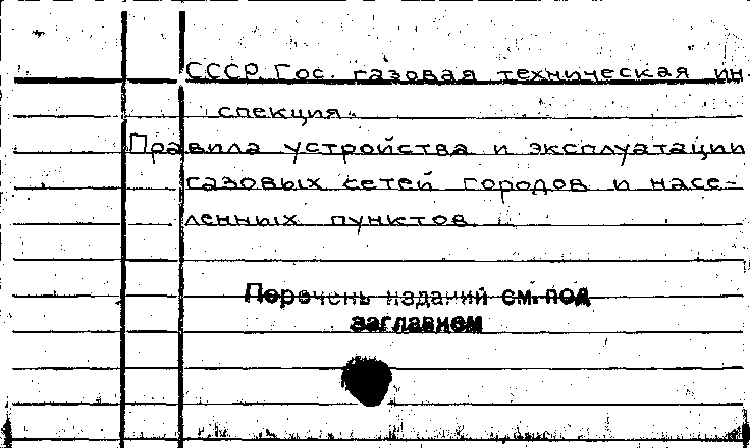 СССР. Гос. газовая техническая ин
спекция.
Правила устройства и эксплуатации
газовых сетей городов и насе-
ленных пунктов.
Перечень изданий см. под
заглавием